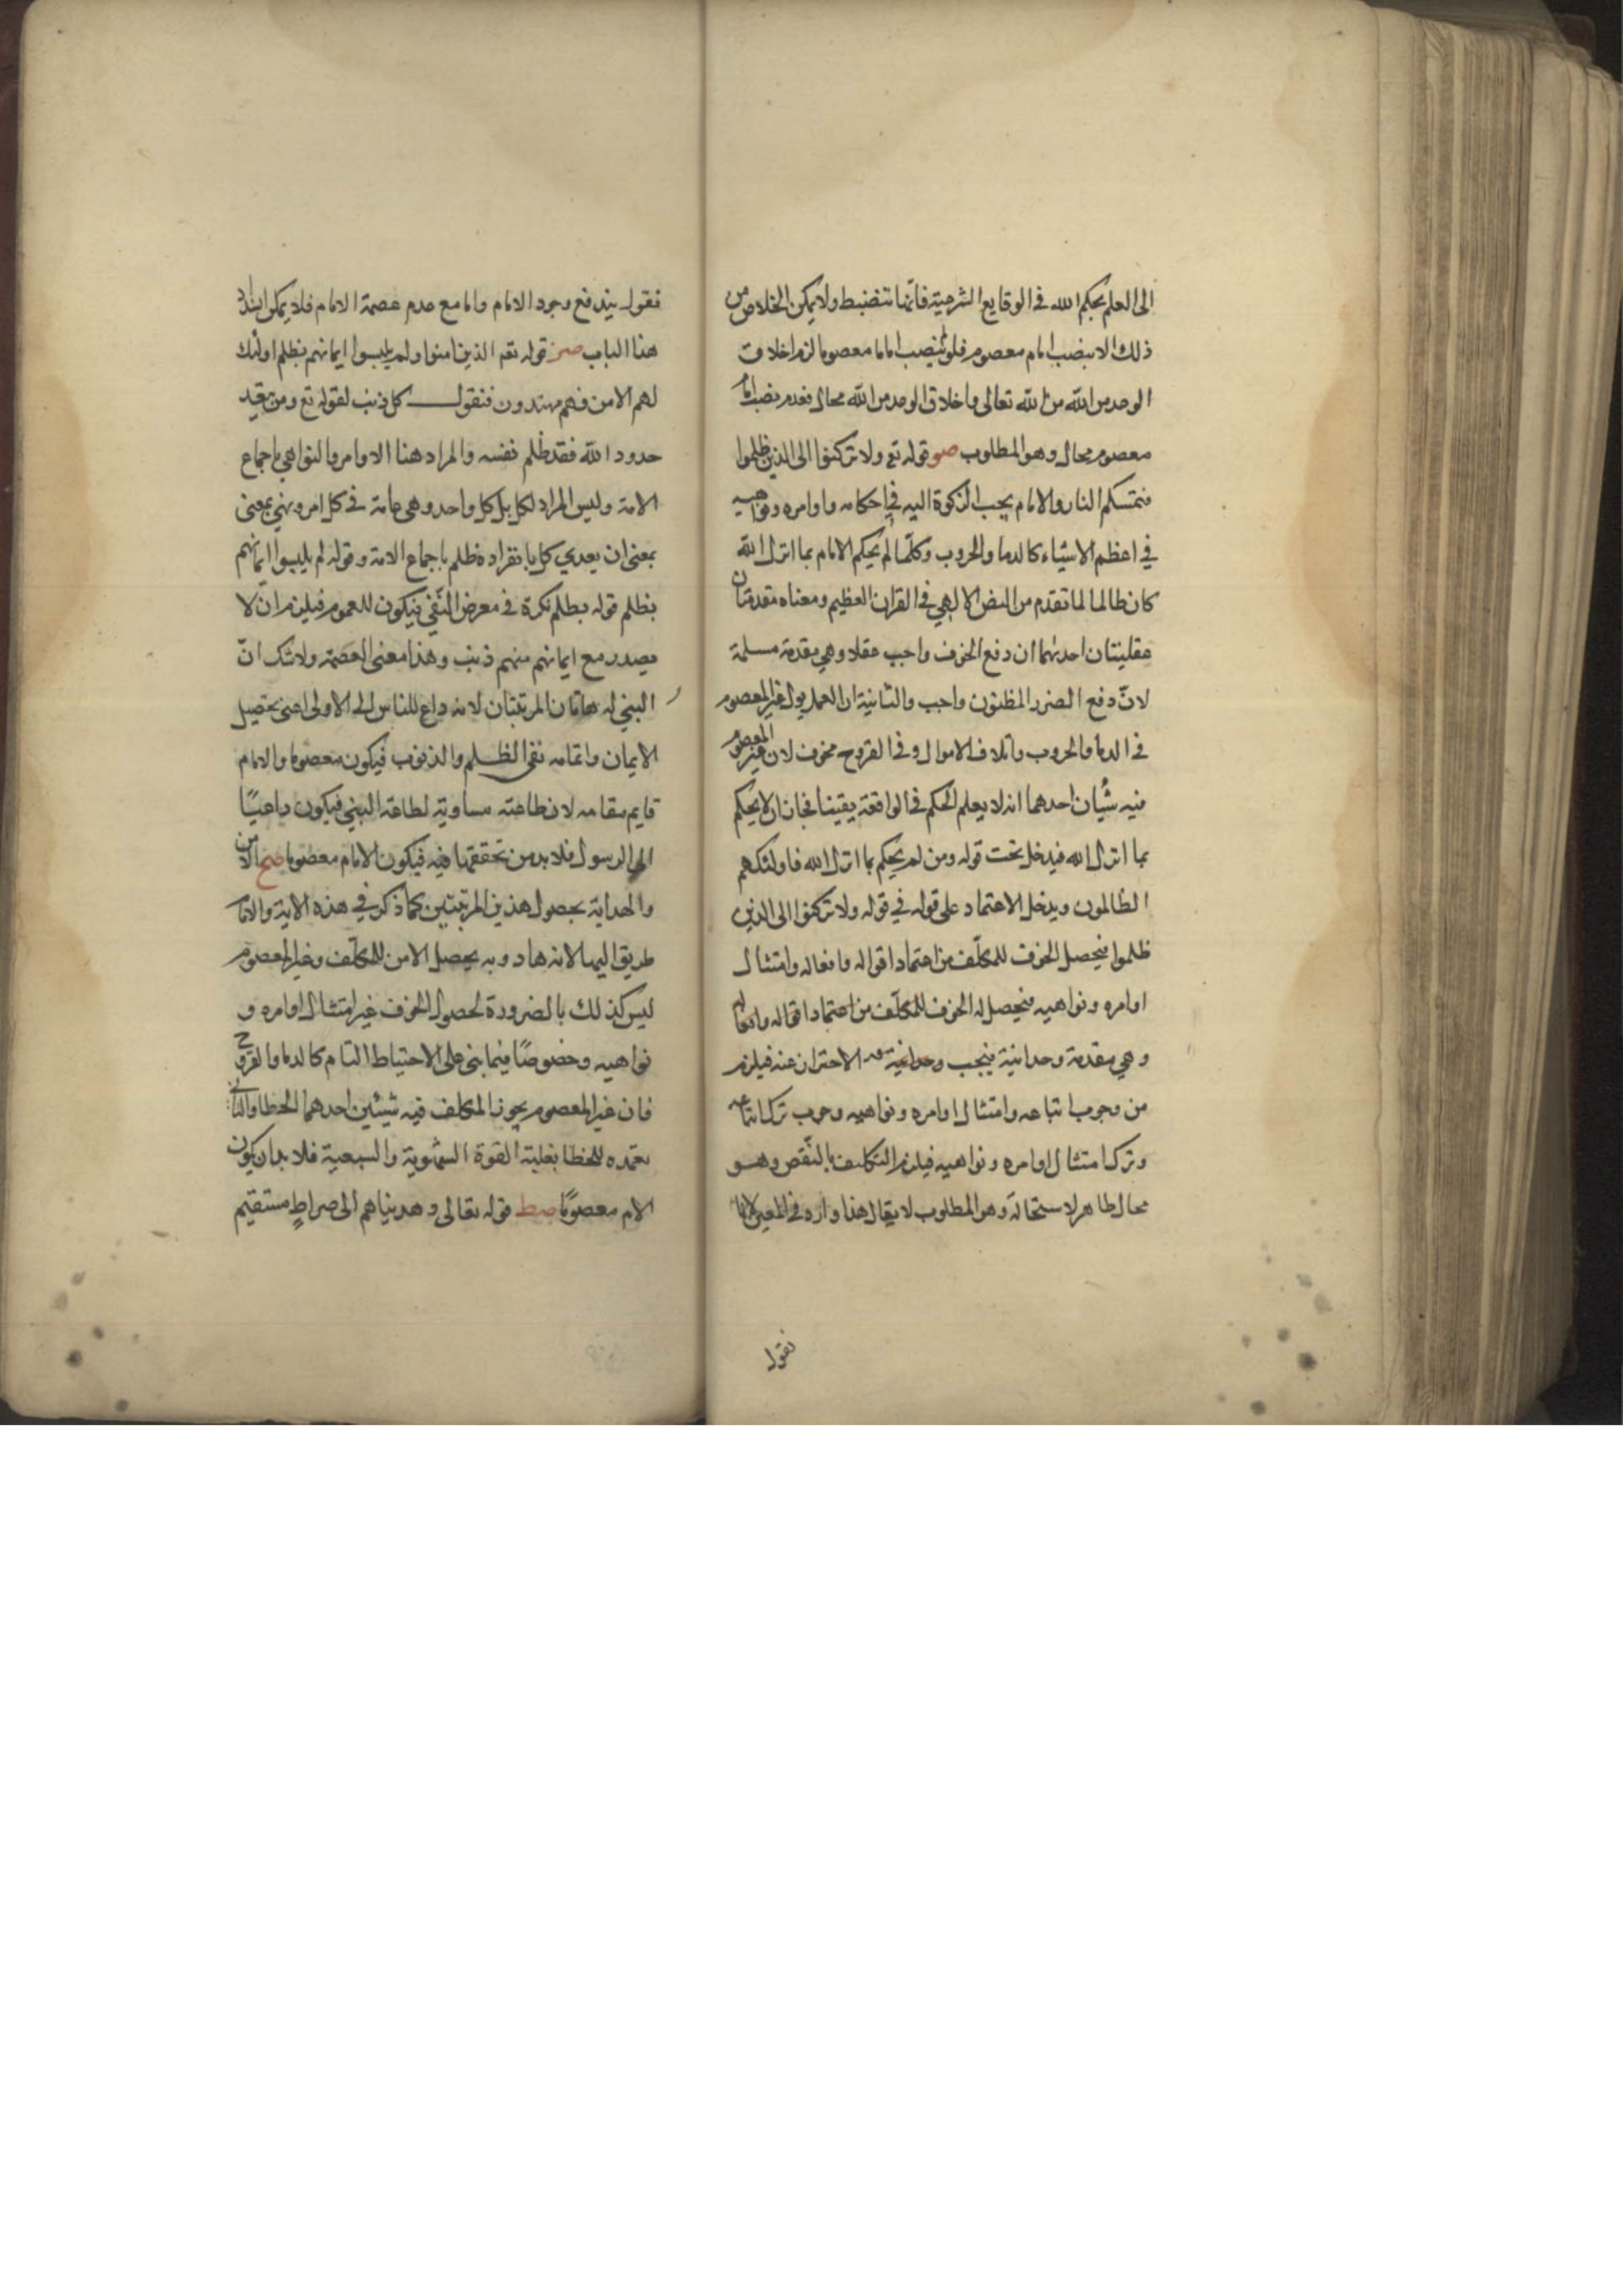 الى العلم بحكم الله في الوقايع الشرعية فانها تنضبط ولا يمكن الخلاص من
ذلك الا بنصب امام معصوم فلو لم ينصب اماما معصوما لزم اخلاف
الوعد من الله من الله تعالى واخلاف الوعد من الله محال فعدم نصب امام
معصوم محال وهو المطلوب صو قوله تع ولا تركنوا الى الذين ظلموا
فتمسكم النار والامام يجب الركون اليه في احكامه واوامره ونواهيه
في اعظم الاشياء كالدما والحروب وكلما لم يحكم الامام بما انزل الله
كان ظالما لما تقدم من النص الالهي في القران العظيم ومعناه مقدمتان
عقليتان احديهما ان دفع الخوف واجب عقلا وهي مقدمة مسلمة
لانّ دفع الضرر المظنون واجب والثانية ان العمل بقول غير المعصوم
في الدما والحروب واتلاف الاموال وفي الفروج مخوف لان غير المعصوم
فيه شيان احدهما انه لا يعلم الحكم في الواقعة يقينا فجاز ان لا يحكم
بما انزل الله فيدخل تحت قوله ومن لم يحكم بما انزل الله فاولئك هم
الظالمون ويدخل الاعتماد على قوله في قوله ولا تركنوا الى الذين
ظلموا فيحصل الخوف للمكلّف من اعتماد اقواله وافعاله وامتثال
اوامره ونواهيه فيحصل له الخوف للمكلّف من اعتماد اقواله وافعاله
وهي مقدمة وجدانية فيجب الاحتراز عنه فيلزم
من وجوب اتباعه وامتثال اوامره ونواهيه وجوب ترك اتباعه
وترك امتثال اوامره ونواهيه فيلزم التكليف بالنّقض وهو
محال ظاهر الاستحالة وهو المطلوب لا يقال هذا وارد في
نقول
فنقول يندفع وجود الامام واما مع عدم عصمة الامام فلا يمكن انسداد
هذا الباب صز قوله تعم الذين امنوا ولم يلبسوا ايمانهم بظلم اولئك
لهم الامن وهم مهتدون فنقول كل ذنب لقوله تع ومن يتعد
حدود الله فقد ظلم نفسه والمراد هنا الاوامر والنواهي باجماع
الامة وليس المراد الكل بل كل واحد وهي عامة في كل امر ونهي بمعنى
بمعنى ان بعدي كل بانفراده ظلم باجماع الامة وقوله لم يلبسوا ايمانهم
بظلم قوله بظلم نكرة في معرض النّفي فيكون للعموم فيلزم ان لا
يصدر مع ايمانهم منهم ذنب وهذا معنى العصمة ولا شك انّ
النبي له هاتان المرتبتان لانه داع للناس الى الاولى اعني تحصيل
الايمان واتمامه نفي الظلم والذنوب فيكون معصوما والامام
قايم مقامه لان طاعته مساوية لطاعة النبي فيكون داعيًا
الى الرسول فلا بد من تحققهما فيه فيكون الامام معصوما صح الامن
والهداية بحصول هذين المرتبتين كما ذكر في هذه الاية والامام
طريق اليهما لانه هاد وبه يحصل الامن للمكلّف وغير المعصوم
ليس كذلك بالضرورة لحصول الخوف غير امتثال اوامره و
نواهيه وخصوصًا فيما بنى على الاحتياط التام كالدما والفروج
فان غير المعصوم يجوز المكلف فيه شيئين احدهما الخطا والثاني
تعمده للخطا بغلبة القوة الشهوية والسبعية فلا بد ان يكون
الامام معصومًا صط قوله تعالى وهديناهم الى صراطٍ مستقيم